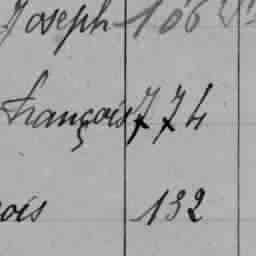 Joseph 106
François 774
ois 132